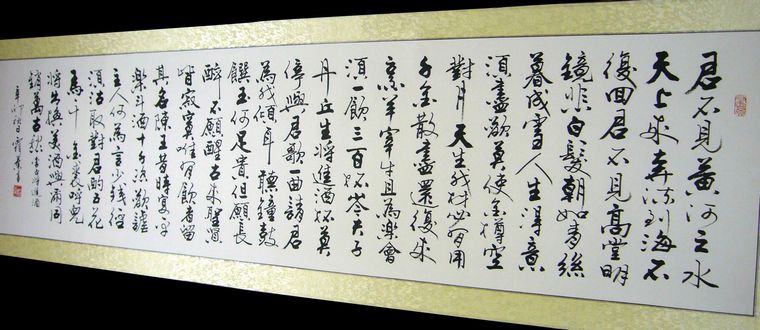 君不見黄河之水
天上來奔流到海不
復回君不見高堂明
鏡悲白髮朝如青絲
暮成雪人生得意
須盡歡莫使金樽空
對月天生我材必有用
千金散盡還復來
烹羊宰牛且為樂會
須一飲三百杯岑夫子
丹丘生將進酒杯莫
停與君歌一曲請君
為我傾耳聽鐘鼓
饌玉何足貴但願長
醉不願醒古來聖賢
皆寂寞唯有飲者留
其名陳王昔時宴平
樂斗酒十千恣歡謔
主人何為言少錢徑
須沽取對君酌五花
馬千金裘呼兒
將出換美酒與爾同
銷萬古愁 李白將進酒
辛卯秋日